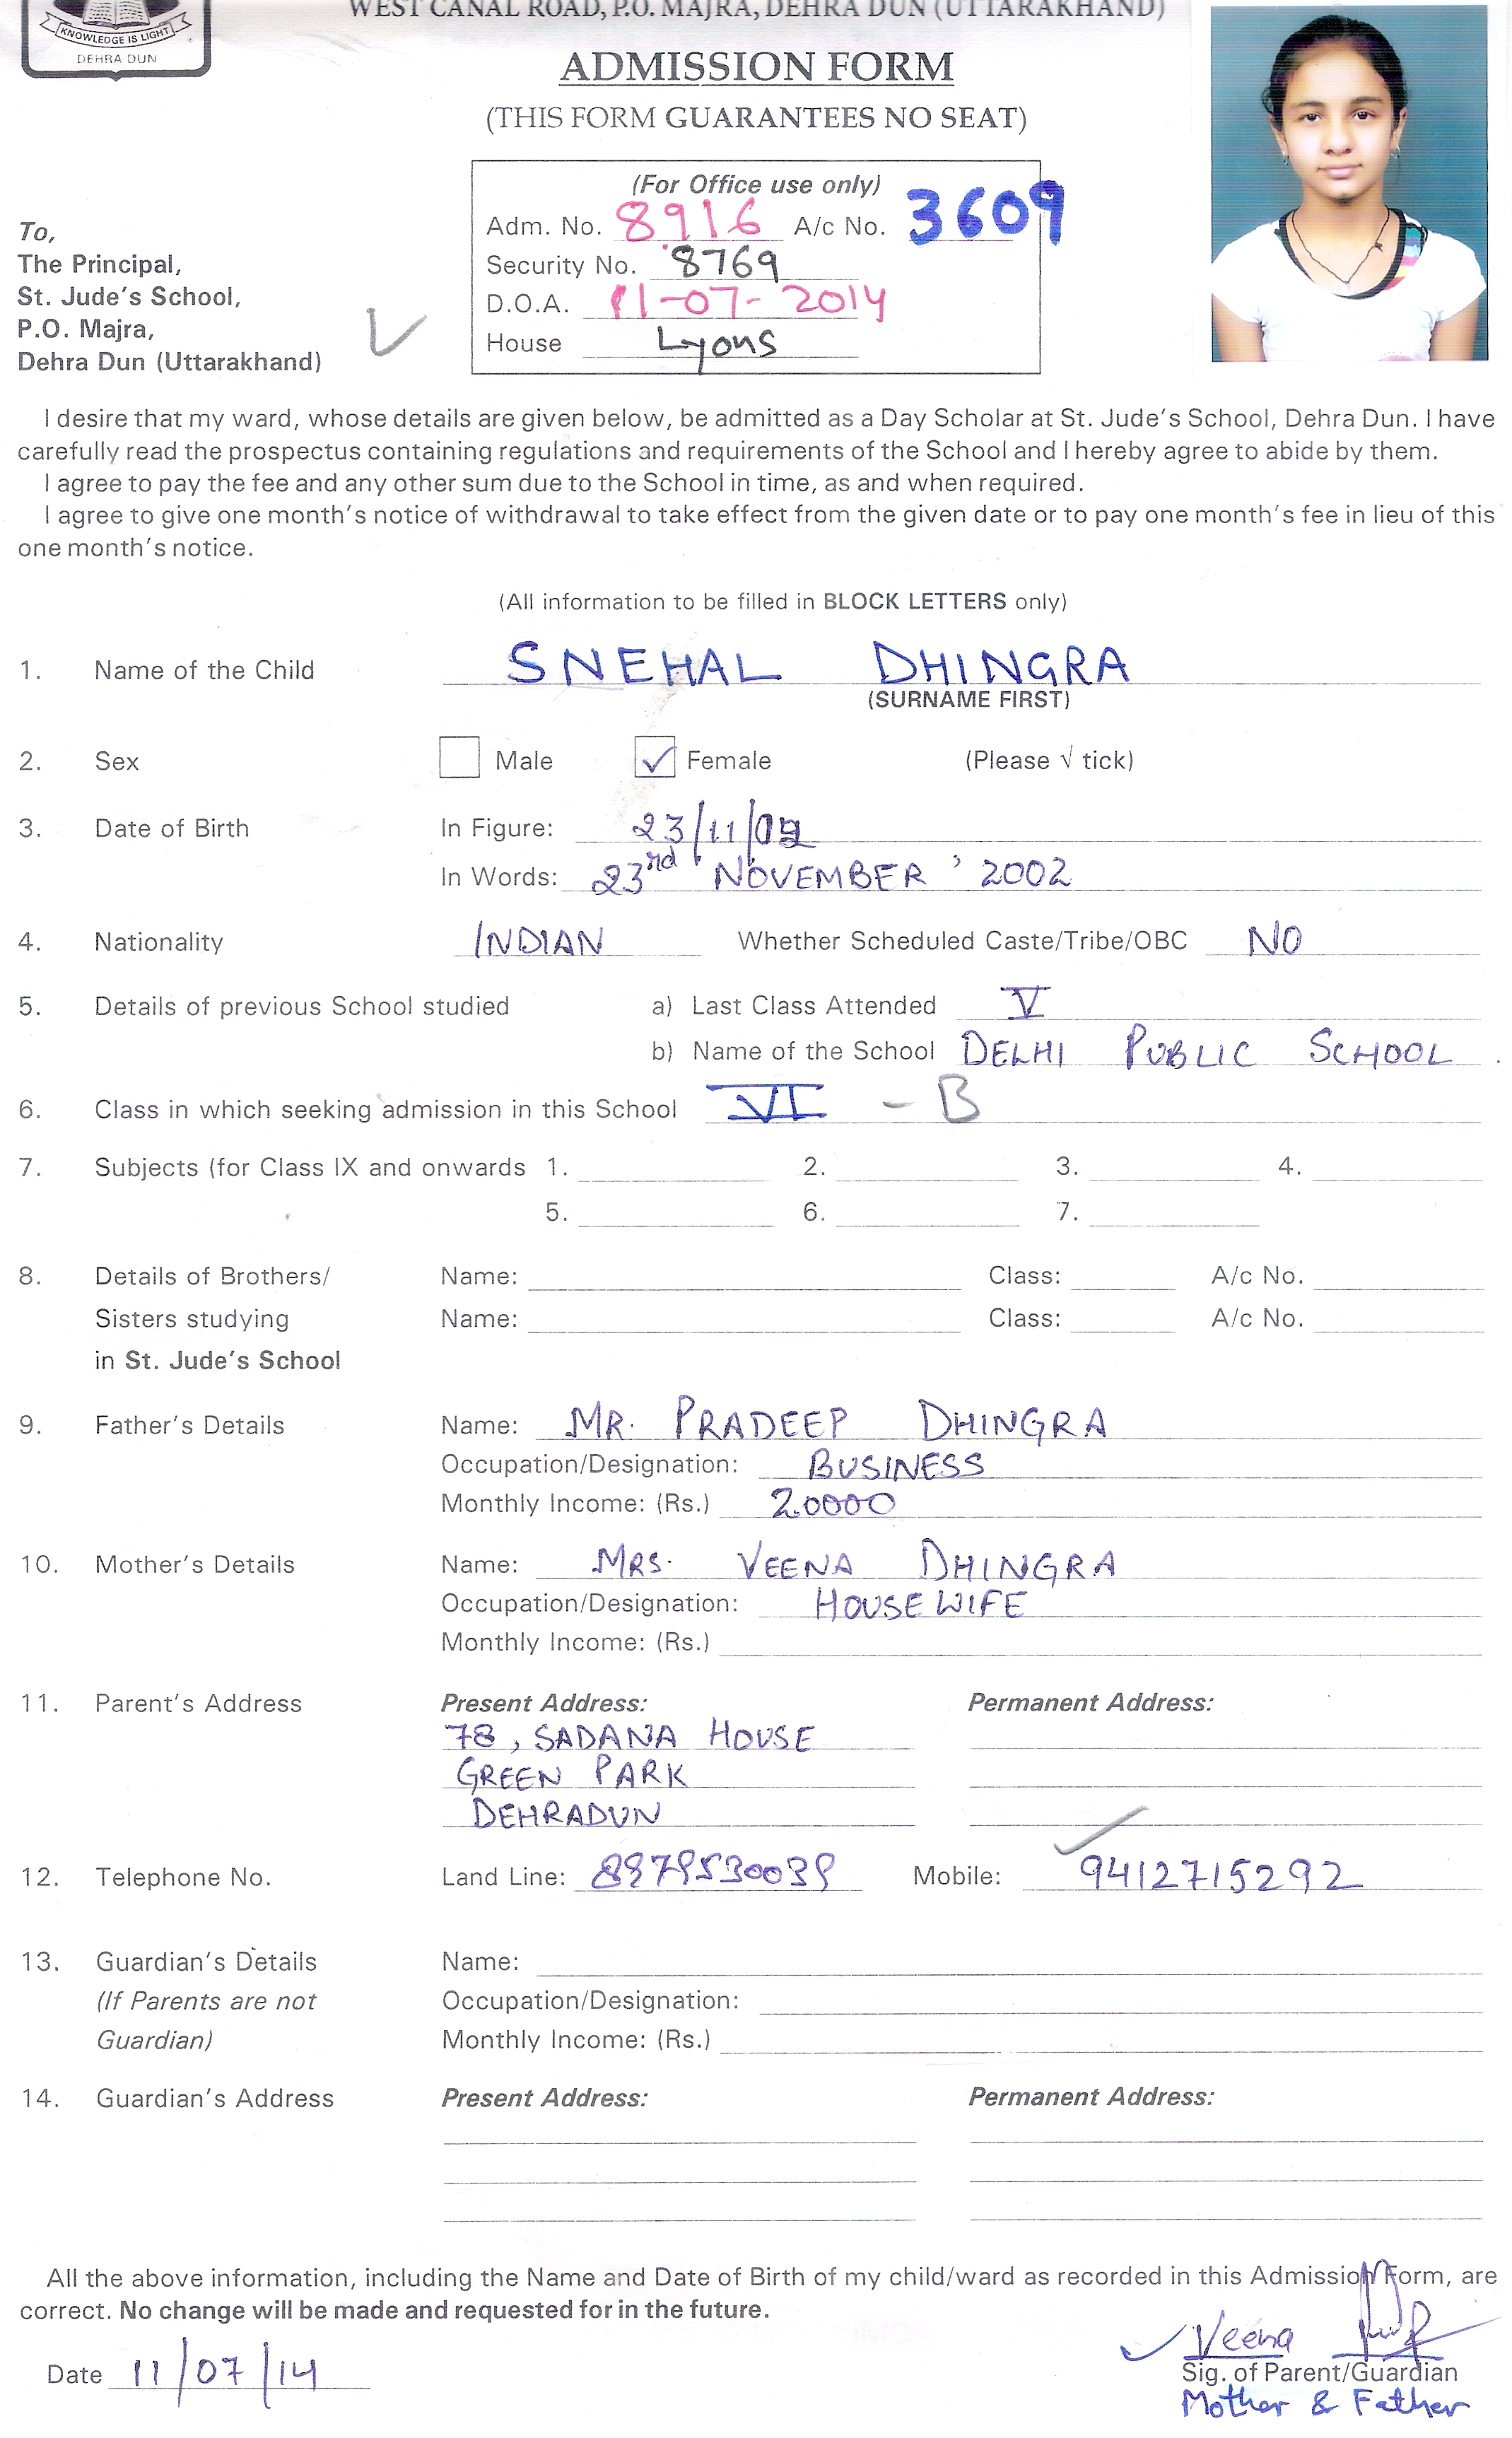 KNOWLEDGE IS LIGHT
DEHRA DUN
WEST CANAL ROAD, P.O. MAJRA, DEHRA DUN (UTTARAKHAND)
ADMISSION FORM
(THIS FORM GUARANTEES NO SEAT)
(For Office use only)
Adm. No. 8916 A/c No. 3609
Security No. 8769
D.O.A. 11-07-2014
House Lyons
To,
The Principal,
St. Jude's School,
P.O. Majra,
Dehra Dun (Uttarakhand)
I desire that my ward, whose details are given below, be admitted as a Day Scholar at St. Jude's School, Dehra Dun. I have
carefully read the prospectus containing regulations and requirements of the School and I hereby agree to abide by them.
I agree to pay the fee and any other sum due to the School in time, as and when required.
I agree to give one month's notice of withdrawal to take effect from the given date or to pay one month's fee in lieu of this
one month's notice.
(All information to be filled in BLOCK LETTERS only)
1. Name of the Child SNEHAL DHINGRA
(SURNAME FIRST)
2. Sex Male ✓ Female (Please √ tick)
3. Date of Birth In Figure: 23/11/02
In Words: 23rd NOVEMBER ' 2002
4. Nationality INDIAN Whether Scheduled Caste/Tribe/OBC NO
5. Details of previous School studied a) Last Class Attended V
b) Name of the School DELHI PUBLIC SCHOOL
6. Class in which seeking admission in this School VI - B
7. Subjects (for Class IX and onwards 1. 2. 3. 4.
5. 6. 7.
8. Details of Brothers/ Name: Class: A/c No.
Sisters studying Name: Class: A/c No.
in St. Jude's School
9. Father's Details Name: MR. PRADEEP DHINGRA
Occupation/Designation: BUSINESS
Monthly Income: (Rs.) 20000
10. Mother's Details Name: MRS. VEENA DHINGRA
Occupation/Designation: HOUSE WIFE
Monthly Income: (Rs.)
11. Parent's Address Present Address: Permanent Address:
78, SADANA HOUSE
GREEN PARK
DEHRADUN
12. Telephone No. Land Line: Mobile: 9412715292
13. Guardian's Details Name:
(If Parents are not Occupation/Designation:
Guardian) Monthly Income: (Rs.)
14. Guardian's Address Present Address: Permanent Address:
All the above information, including the Name and Date of Birth of my child/ward as recorded in this Admission Form, are
correct. No change will be made and requested for in the future.
Veena
Date 11/07/14 Sig. of Parent/Guardian
Mother & Father